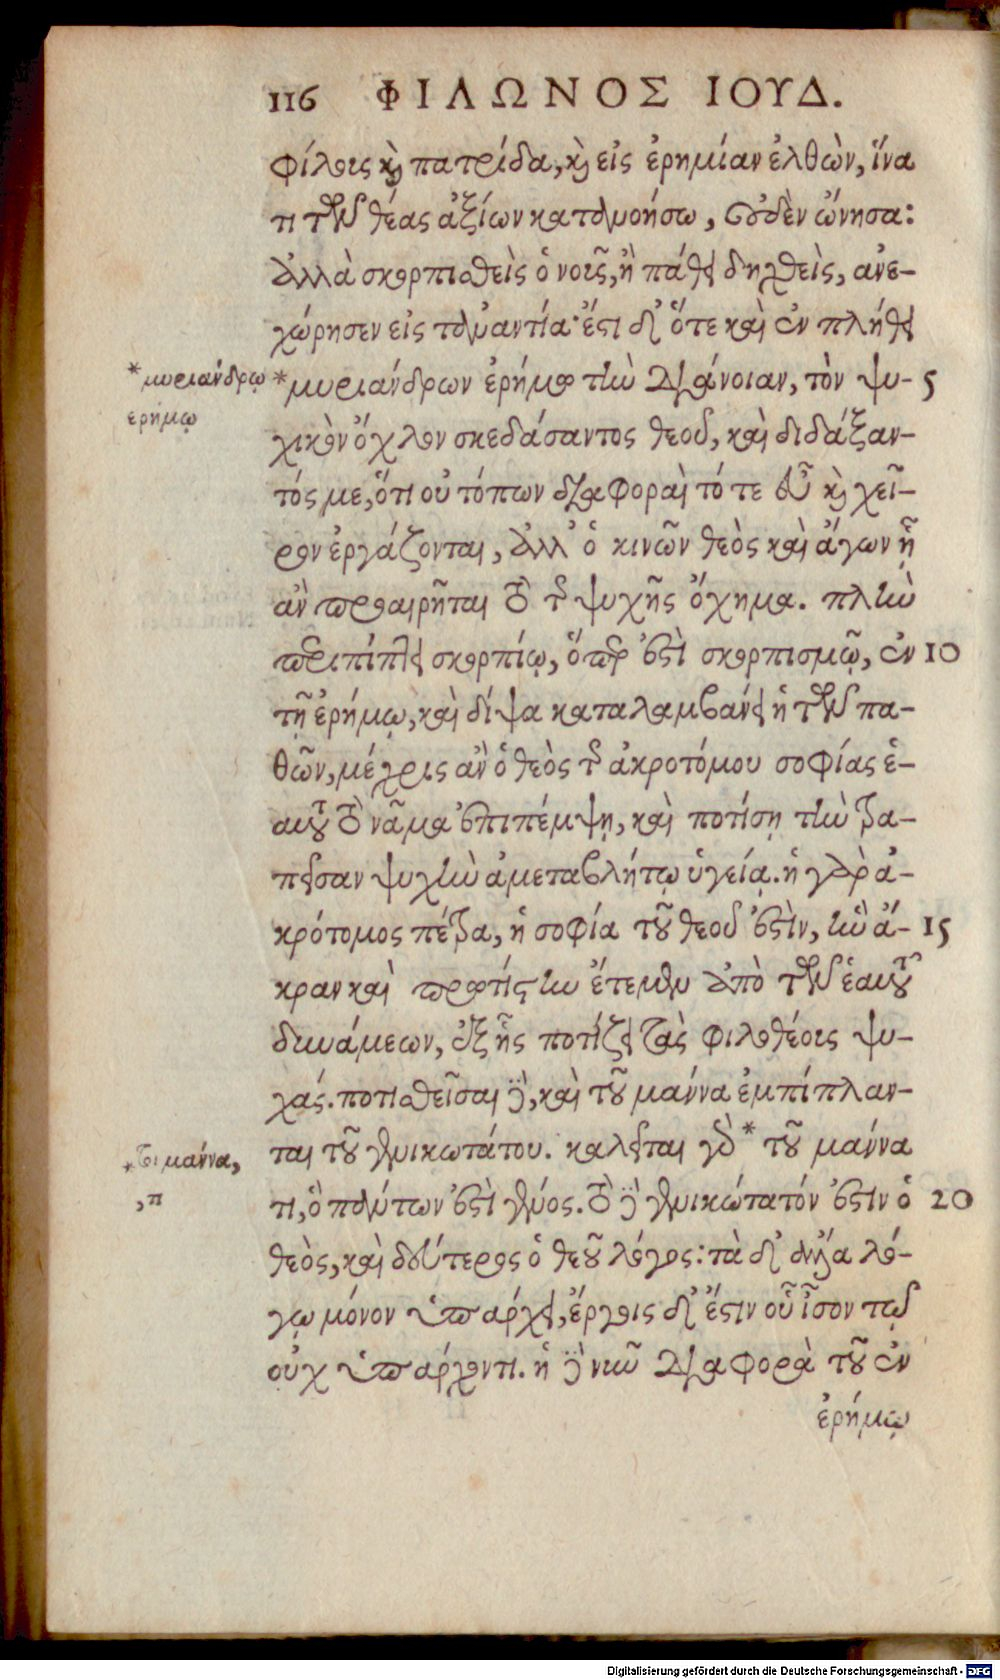 116 ΦΙΛΩΝΟΣ ΙΟΥΔ.
φίλοις καὶ πατρίδα, καὶ εἰς ἐρημίαν ἐλθὼν, ἵνα
τι τῶν θέας ἀξίων κατανοήσω, οὐδὲν ὤνησα:
ἀλλὰ σκορπισθεὶς ὁ νοῦς, ἢ πάθει δηχθεὶς, ἀνε-
χώρησεν εἰς τἀναντία· ἔστι δ' ὅτε καὶ ἐν πλήθει
*μυριάνδρῳ
ερήμῳ
*μυριάνδρων ἐρήμω τὴν διάνοιαν, τὸν ψυ- 5
χικὸν ὄχλον σκεδάσαντος θεοῦ, καὶ διδάξαν-
τός με, ὅτι οὐ τόπων διαφοραὶ τό τε εὖ καὶ χεῖ-
ρον ἐργάζονται, ἀλλ' ὁ κινῶν θεὸς καὶ ἄγων ᾗ
ἂν προαιρῆται τὸ τῆς ψυχῆς ὄχημα. πλὴν
περιπίπτει σκορπίῳ, ὅπερ ἐστὶ σκορπισμῷ, ἐν 10
τῇ ἐρήμῳ, καὶ δίψα καταλαμβάνει ἡ τῶν πα-
θῶν, μέχρις ἂν ὁ θεὸς τῆς ἀκροτόμου σοφίας ἑ-
αυτοῦ τὸ νᾶμα ἐπιπέμψῃ, καὶ ποτίσῃ τὴν τρα-
πεῖσαν ψυχὴν ἀμεταβλήτῳ ὑγείᾳ. ἡ γὰρ ἀ-
κρότομος πέτρα, ἡ σοφία τοῦ θεοῦ ἐστὶν, ἣν ἄ- 15
κραν καὶ πρωτίστην ἔτεμεν ἀπὸ τῶν ἑαυτοῦ
δυνάμεων, ἐξ ἧς ποτίζει τὰς φιλοθέοις ψυ-
χάς. ποτισθεῖσαι δὲ, καὶ τοῦ μάννα ἐμπίπλαν-
*τὸ μαννα,
,π
ται τοῦ γενικωτάτου. καλεῖται γὰρ * τοῦ μάννα
τι, ὃ πάντων ἐστὶ γένος. τὸ δὲ γενικώτατόν ἐστιν ὁ 20
θεὸς, καὶ δεύτερος ὁ θεοῦ λόγος: τὰ δ' ἄλλα λό-
γῳ μόνον ὑπάρχει, ἔργοις δ' ἔστιν οὗ ἶσον τῷ
οὐχ ὑπάρχοντι. ἡ δὲ νῦν διαφορὰ τοῦ ἐν
ἐρήμῳ
Digitalisierung gefördert durch die Deutsche Forschungsgemeinschaft - DFG